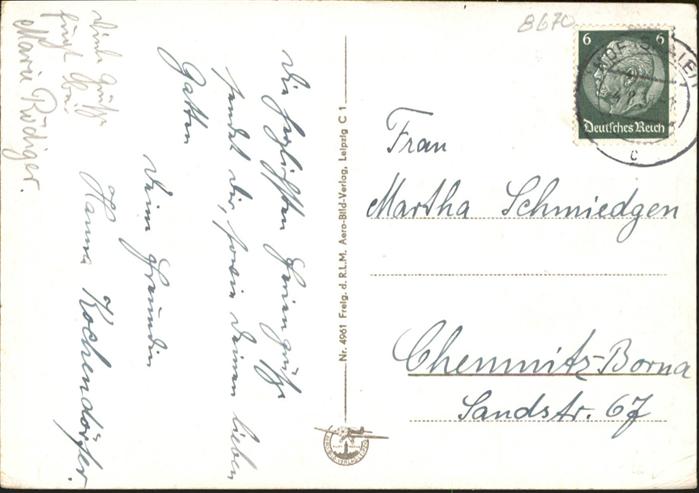 Viele Grüße
fügt bei
Marie Rödiger.
Die herzlichsten Feriengrüße
sendet Dir, sowie Deinem lieben
Gatten
Deine Freundin
Hanna Kochendörfer.
Nr. 4961 Freig. d. R.L.M. Aero-Bild-Verlag, Leipzig C 1
8670
6 6
Deutsches Reich
HOF
c
Frau
Martha Schmiedgen
Chemnitz-Borna
Sandstr. 67